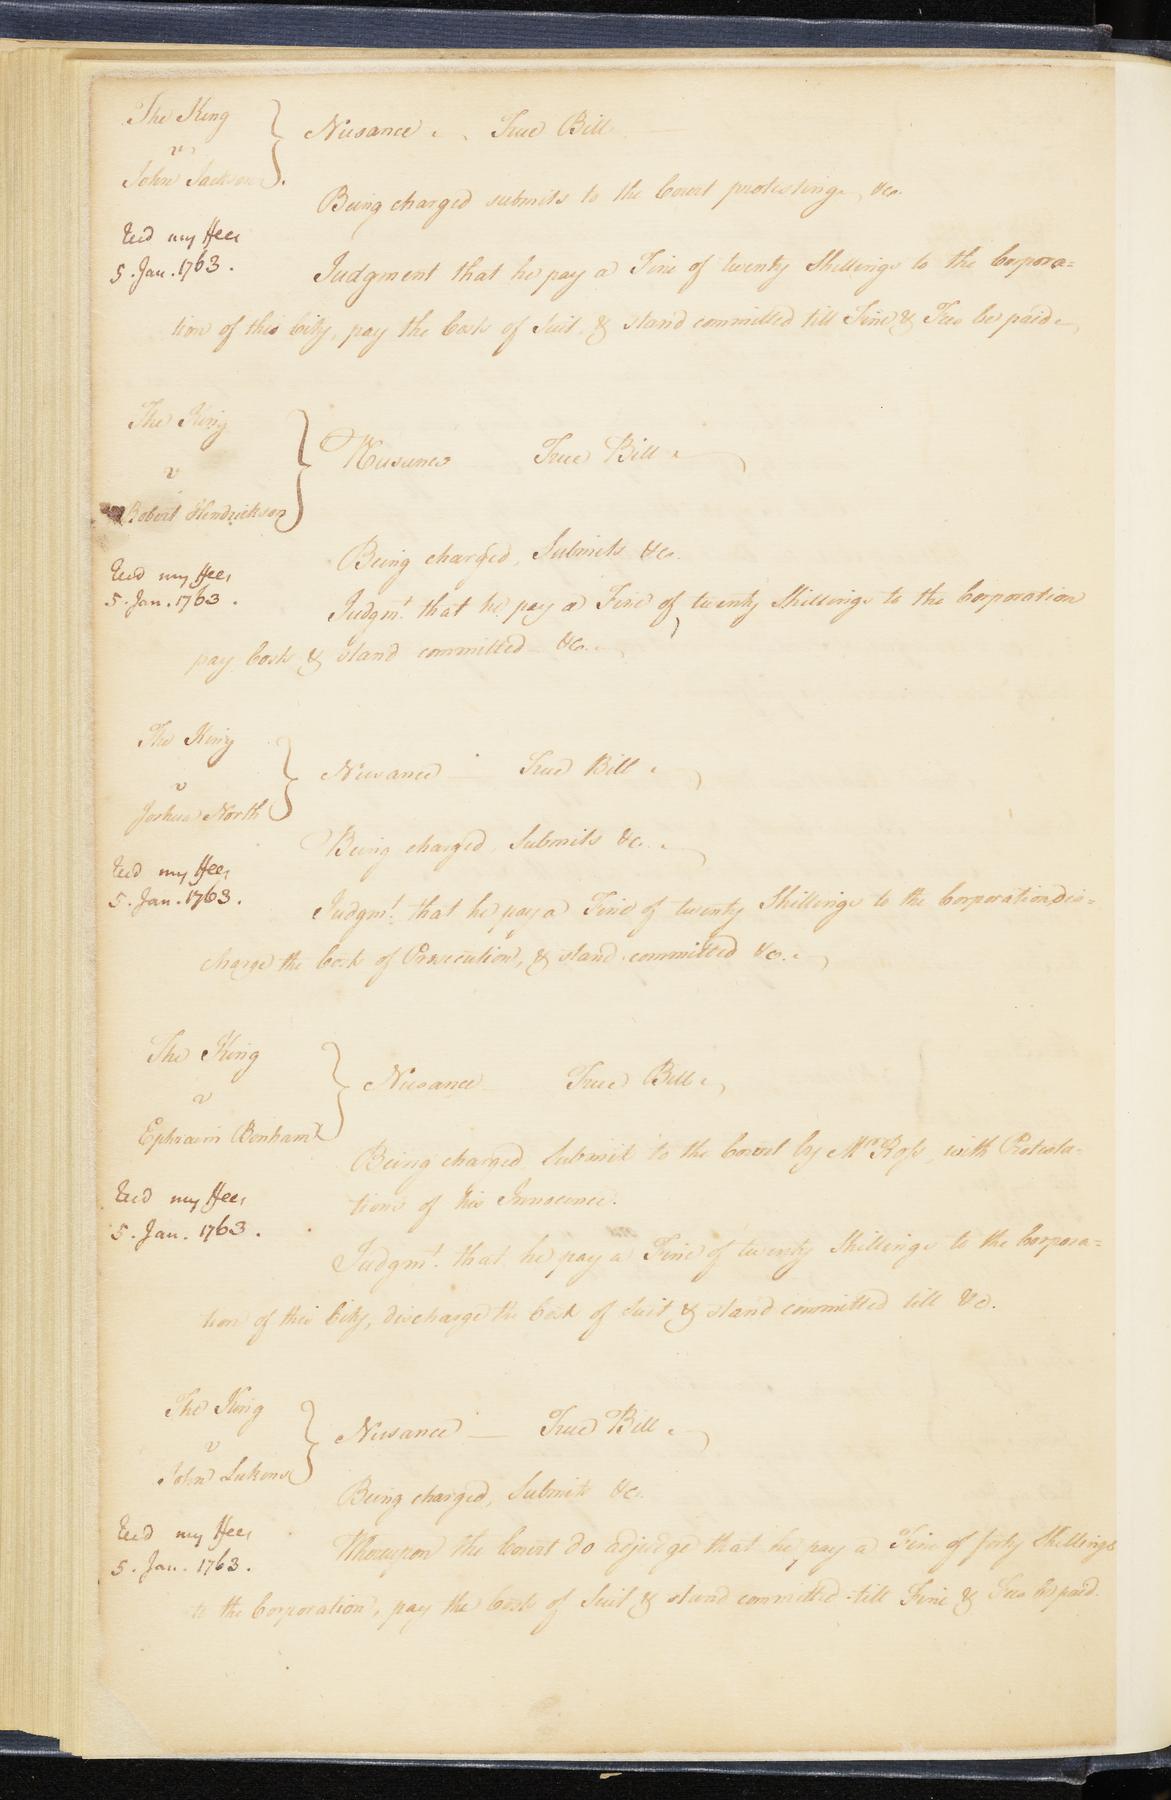 The King
v
John Jackson.
Nusance True Bill
Being charged submits to the Court protesting, &c.
Recd my ffees
5. Jan. 1763.
Judgment that he pay a Fine of twenty Shillings to the Corpora=
tion of this City, pay the Costs of Suit & stand committed till Fine & Fees be paid
The King
v
Robert Hendrickson
Nusance True Bill
Being charged, Submits &c.
Recd my ffees
5. Jan. 1763.
Judgmt. that he pay a Fine of twenty Shillings to the Corporation
pay Costs & stand committed &c.
The King
v
Joshua North
Nusance True Bill
Being charged, Submits &c.
Recd my ffees
5. Jan. 1763.
Judgmt. that he pay a Fine of twenty Shillings to the Corporation, dis=
charge the Costs of Prosecution, & stand committed &c.
The King
v
Ephraim Bonham
Nusance True Bill
Being charged Submit to the Court by Mr. Ross, with Protesta=
tions of his Innocence.
Recd my ffees
5. Jan. 1763.
Judgmt. that he pay a Fine of twenty Shillings to the Corpora=
tion of this City, discharge the Costs of Suit & stand committed till &c.
The King
v
John Lukens
Nusance True Bill
Being charged, Submits &c.
Recd my ffees
5. Jan. 1763.
Whereupon the Court do adjudge that he pay a Fine of forty Shillings
to the Corporation, pay the Costs of Suit & stand committed till Fine & Fees be paid.